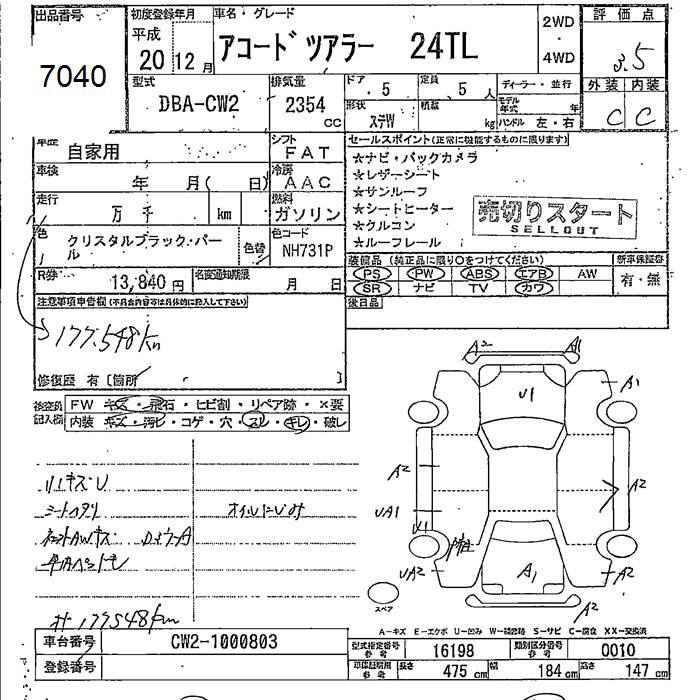 出品番号
7040
初度登録年月
平成
20 12月
車名・グレード
アコード ツアラー 24TL
2WD
・
4WD
評価点
3.5
外装 内装
C C
型式
DBA-CW2
排気量
2354 cc
ドア
・5
定員
5人
形状
ステW
積載
kg
ディーラー・並行
モデル年式 年
ハンドル 左・右
車歴
自家用
シフト
FAT
車検
年 月( 日)
冷房
AAC
走行
万 千 km
燃料
ガソリン
色
クリスタルブラック・パール
色替
色コード
NH731P
R券
13,840円
名変通知期限
月 日
セールスポイント(正常に機能するものに限ります)
☆ナビ・バックカメラ
☆レザーシート
☆サンルーフ
☆シートヒーター
☆クルコン
☆ルーフレール
売切りスタート
SELLOUT
装備品(純正品に限り○をつけてください)
PS PW ABS エアB AW
SR ナビ TV カワ
新車保証書
有・無
後日品
注意事項申告欄(不具合内容等は具体的に記入して下さい)
177.548km
修復歴 有〔箇所 〕
検査員記入欄
FW キズ・飛石・ヒビ割・リペア跡・×要
内装 キズ・汚レ・コゲ・穴・スレ・キレ・破レ
オイルにじみ
177548km
A2 A1
U1
A1
A2
UA1
U1
A2
UA2
A1
A2
A2
スペア
A-キズ E-エクボ U-凹み W-補修跡 S-サビ C-腐食 XX-交換済
車台番号
CW2-1000803
登録番号
型式指定番号 参考
16198
類別区分番号 参考
0010
参考
長さ 475cm 幅 184cm 高さ 147cm